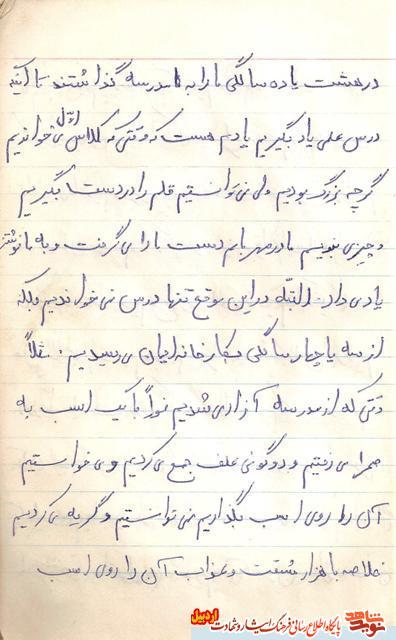 در هشت یا ده سالگی ما را به مدرسه گذاشتند تا آنکه
درس علمی یاد بگیریم یادم هست که وقتی که کلاس اول می خواندیم
گرچه بزرگ بودیم ولی نمی توانستیم قلم را در دست بگیریم
و چیزی بنویسیم مادر مهربانم دست ما را می گرفت و به ما نوشتن
یاد می داد. البته در این موقع تنها درس نمی خواندیم بلکه
از سه یا چهار سالگی بکار خانه ایمان می رسیدیم. مثلاً
وقتی که از مدرسه آزاد می شدیم فوراً با یک اسب به
صحرا می رفتیم و دو گونی علف جمع می کردیم و می خواستیم
آن را روی اسب بگذاریم نمی توانستیم و گریه می کردیم
خلاصه با هزار مشقت و عذاب آن را روی اسب
نوید شاهد پایگاه اطلاع رسانی فرهنگ ایثار و شهادت اردبیل